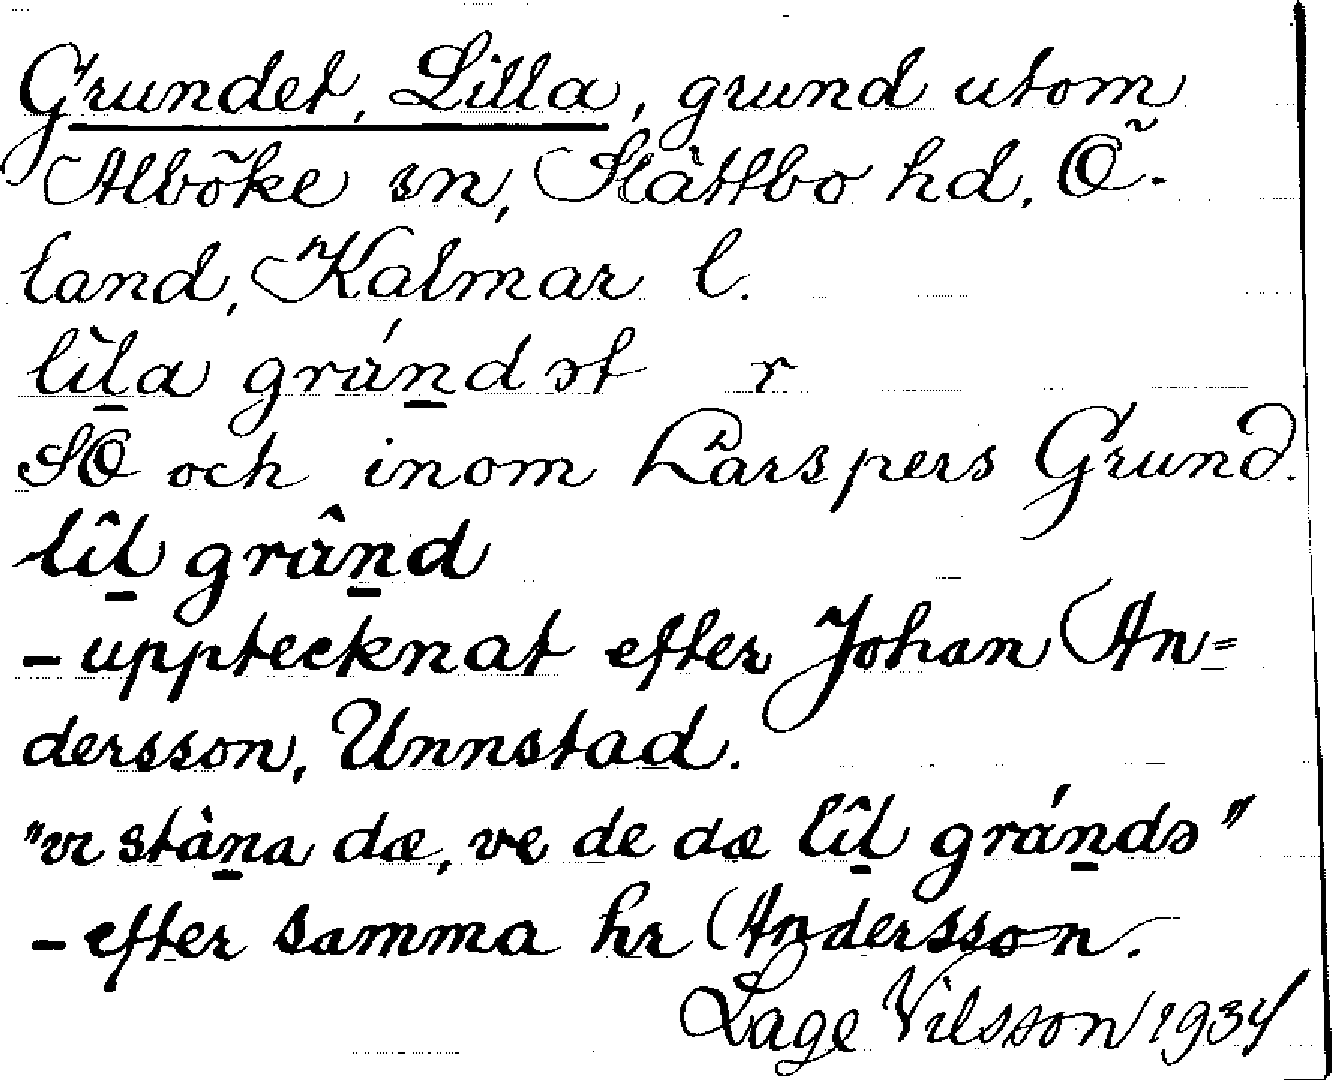 Grundet, Lilla, grund utom
Alböke sn, Slättbo hd. Ö-
land, Kalmar l.
lìla grúndət r
SO och inom Larspers Grund.
lîl grûnd
- upptecknat efter Johan An=
dersson, Unnstad.
"vi stàna dæ, ve de dæ lîl grúndə"
- efter samma hr Andersson.
Lage Nilsson 1934